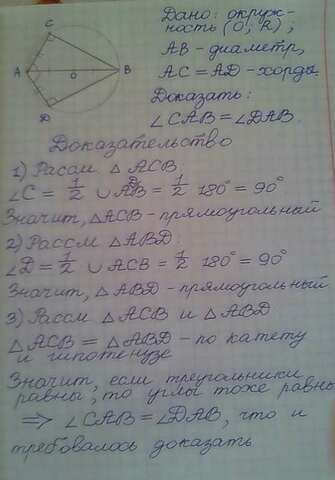 Дано: окруж-
ность (O; R);
AB - диаметр,
AC = AD - хорды.
Доказать:
∠CAB = ∠DAB.
C
A
O
B
D
Доказательство
1) Рассм △ ACB
∠C = 1/2 ∪ ADB = 1/2 180° = 90°
Значит, △ACB - прямоугольный
2) Рассм △ABD:
∠D = 1/2 ∪ ACB = 1/2 180° = 90°
Значит, △ABD - прямоугольный
3) Рассм △ACB и △ABD
△ACB = △ABD - по катету
и гипотенузе
Значит, если треугольники
равны, то углы тоже равны
⇒ ∠CAB = ∠DAB, что и
требовалось доказать